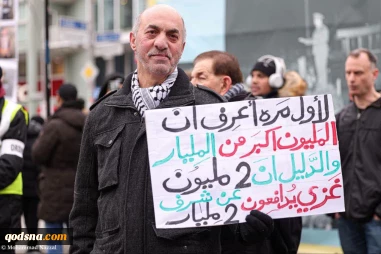 لأول مرة أعرف ان
المليون اكبر من المليار
والدليل ان 2 مليون
غزي يدافعون عن شرف
2 مليار
qodsna.com
© Mohammad Kamal